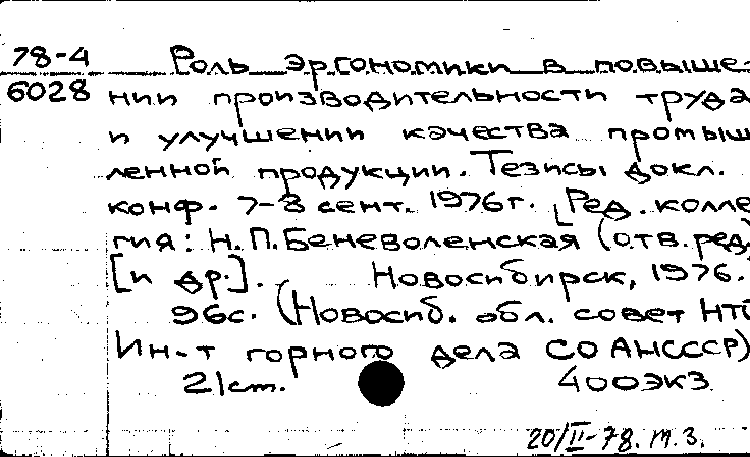 78-4 Роль эргономики в повыше-
6028 нии производительности труда
и улучшении качества промыш
ленной продукции. Тезисы докл.
конф. 7-8 сент. 1976г. [Ред. колле
гия: Н.П.Беневоленская (отв.ред)
[и др.]. Новосибирск, 1976.
96с. (Новосиб. обл. совет НТО
Ин-т горного дела СО АНСССР)
21см. 400экз
20/II-78. м.з.